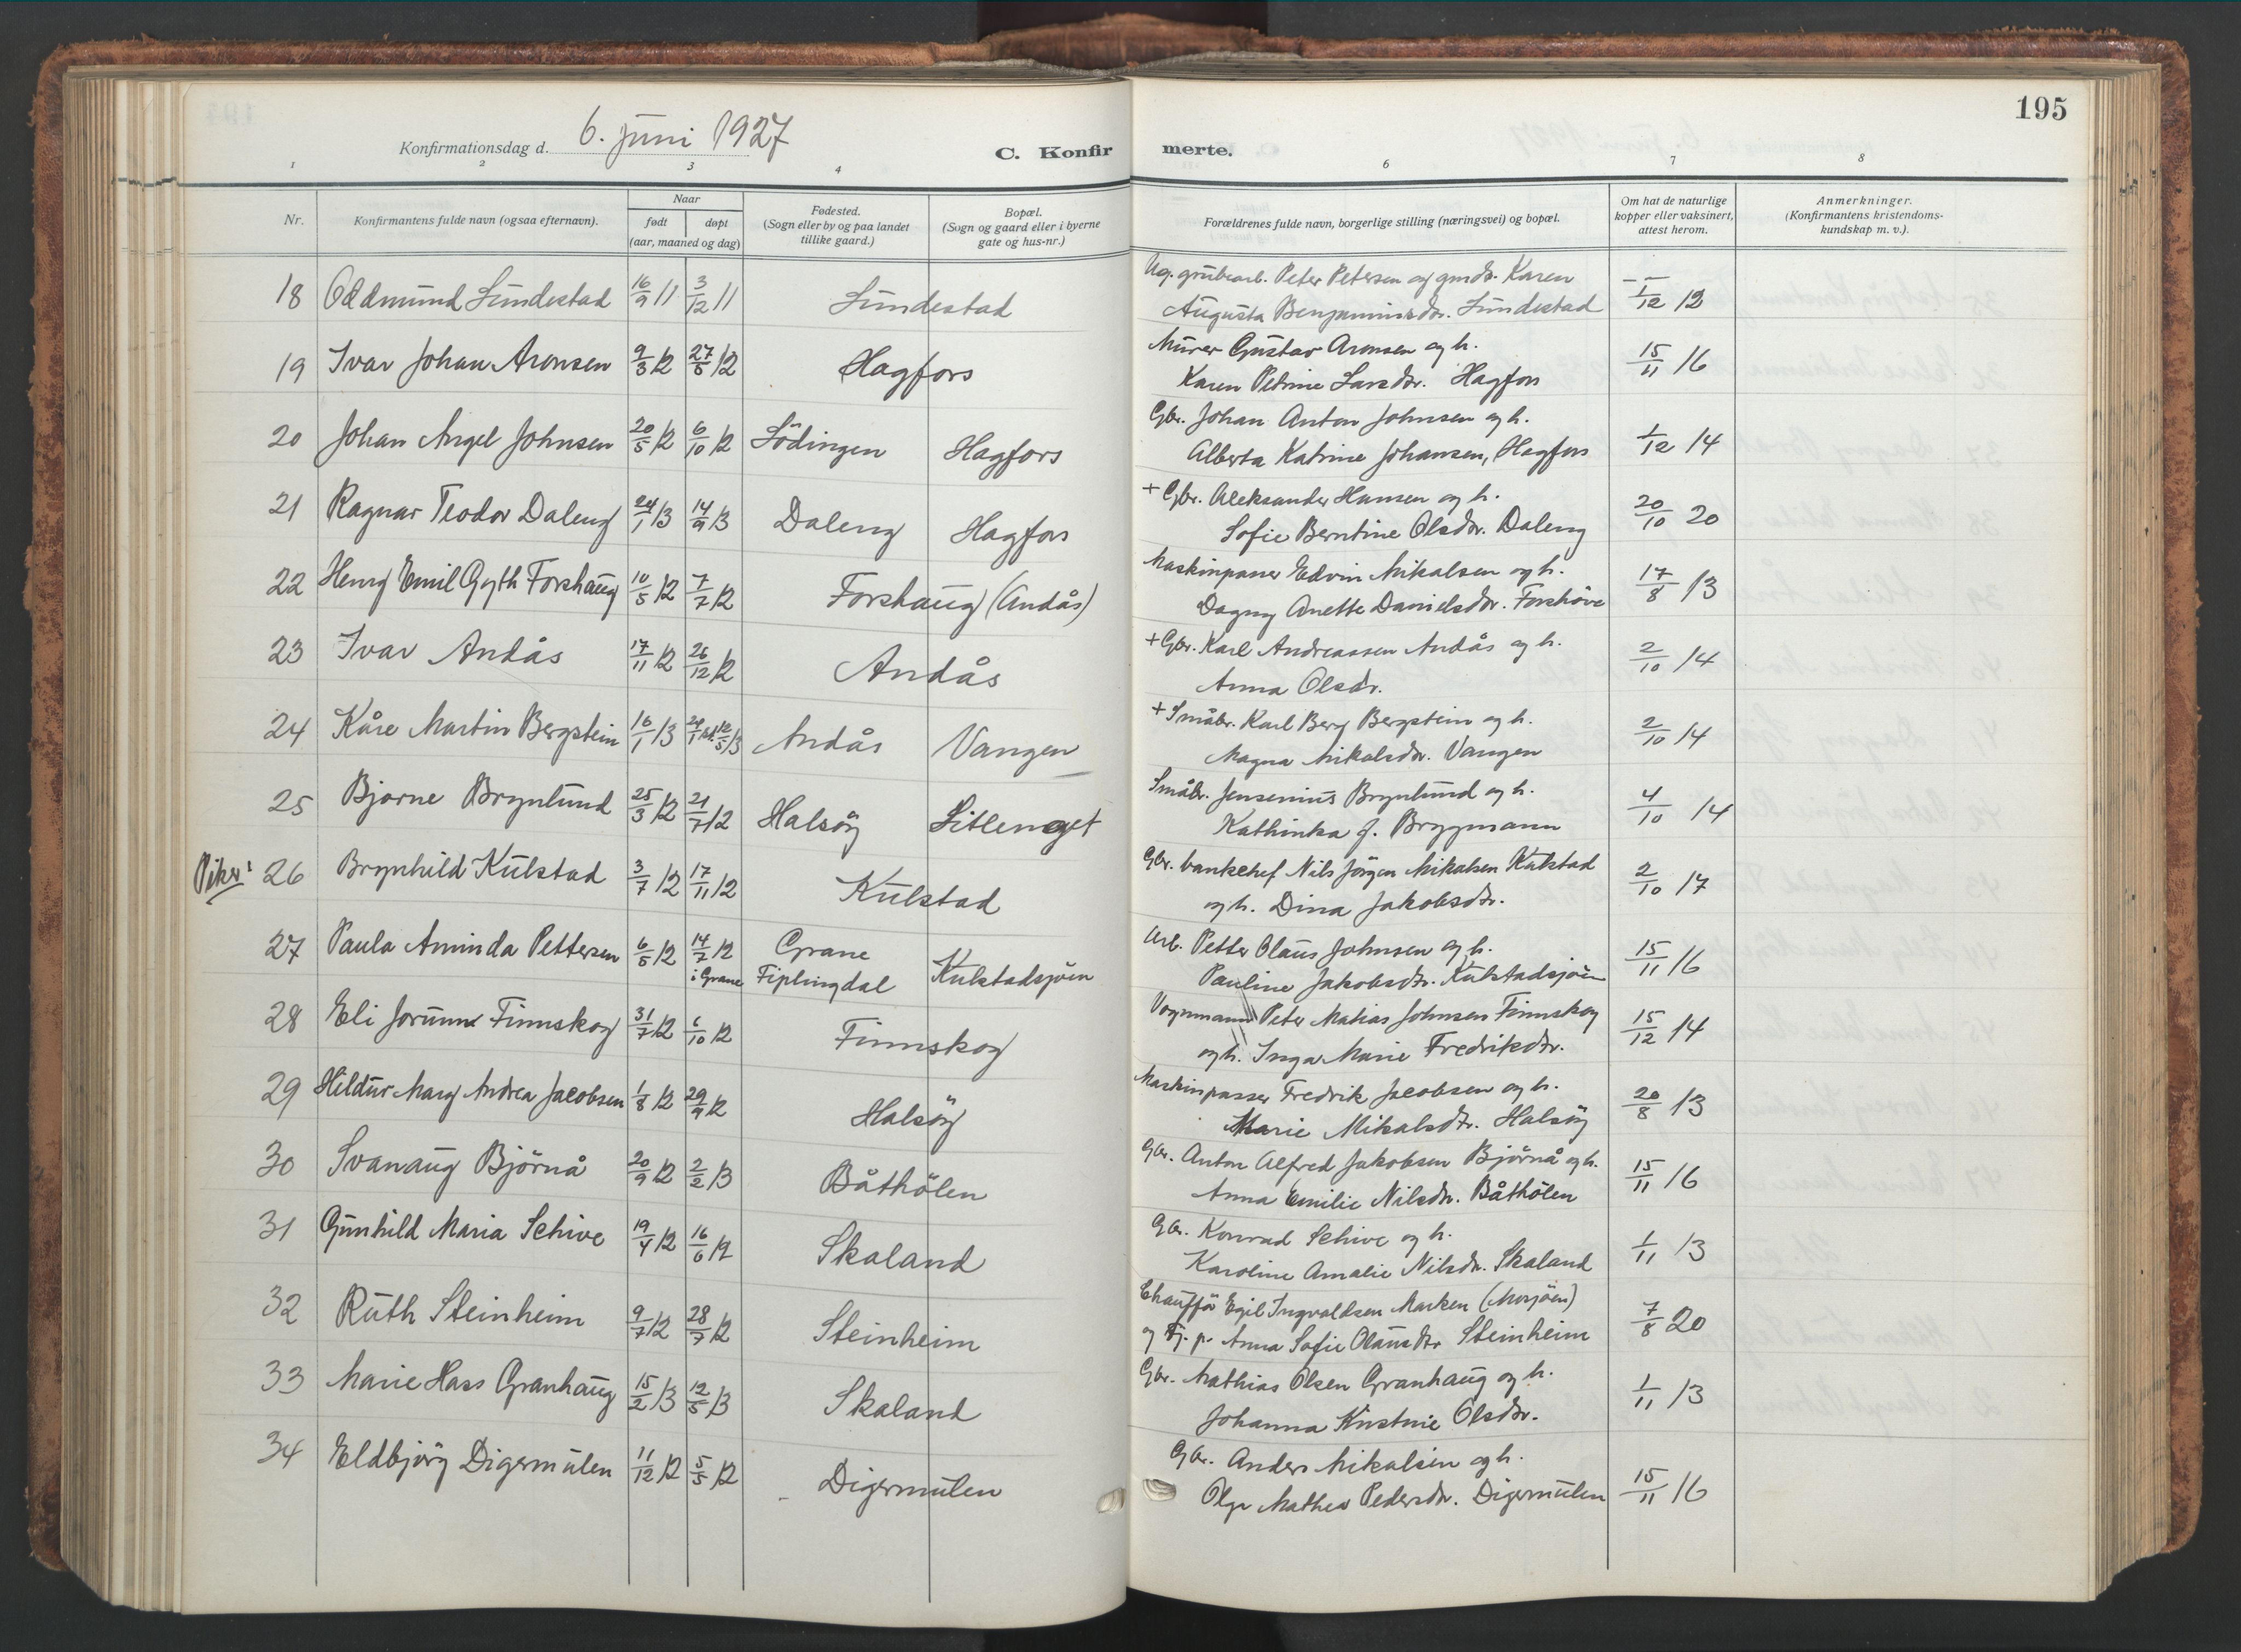 195
Konfirmationsdag d. 6. juni 1927
C. Konfir merte.
1 2 3 4 6 7 8
Nr. Konfirmantens fulde navn (ogsaa efternavn). Naar født døpt (aar, maaned og dag) Fødested. (Sogn eller by og paa landet tillike gaard.) Bopæl. (Sogn og gaard eller i byerne gate og hus-nr.) Forældrenes fulde navn, borgerlige stilling (næringsvei) og bopæl. Om hat de naturlige kopper eller vaksinert, attest herom. Anmerkninger. (Konfirmantens kristendoms-kundskap m. v.).
18 Oddmund Lundestad 16/9 11 3/12 11 Lundestad Ug. grubearb. Peter Petersen og gmdr. Karen
Augusta Benjaminsdr. Lundestad 1/12 12
19 Ivar Johan Aronsen 9/3 12 27/5 12 Hagfors Murer Gustav Aronsen og h.
Karen Petrine Larsdr. Hagfors 15/11 16
20 Johan Angel Johnsen 20/5 12 6/10 12 Lödingen Hagfors Gbr. Johan Anton Johnsen og h.
Alberta Katrine Johansen, Hagfors 1/12 14
21 Ragnar Teodor Daleng 24/1 13 14/9 13 Daleng Hagfors + Gbr. Aleksander Hansen og h.
Sofie Berntine Olsdtr. Daleng 20/10 20
22 Henry Emil Gyth Forshaug 10/5 12 7/7 12 Forshaug (Andås) Maskinpasser Edvin Mikalsen og h.
Dagny Anette Danielsdtr. 17/8 13
23 Ivar Andås 17/11 12 26/12 12 Andås + Gbr. Karl Andreassen Andås og h.
Anna Olsdr. 2/10 14
24 Kåre Martin Bergstein 16/1 13 12/5 13 Andås Vangen + Småbr. Karl Berg Bergstein og h.
Magna Mikalsdtr. Vangen 2/10 14
25 Bjarne Brynlund 25/3 12 21/7 12 Halsöy Litlenget Småbr. Jensenius Brynlund og h.
Kathinka f. Bryggmann 4/10 14
Piker: 26 Brynhild Kulstad 3/7 12 17/11 12 Kulstad Gbr. bankchef Nils Jörgen Mikalsen Kulstad
og h. Dina Jakobsdtr. 2/10 17
27 Paula Aminda Pettersen 6/5 12 14/7 12 i Grane Grane Fiplingdal Kulstadsjöen Arb. Petter Olaus Johnsen og h.
Pauline Jakobsdtr. Kulstadsjöen 15/11 16
28 Eli Jorunn Finnskog 31/7 12 6/10 12 Finnskog Vognmann Peter Matias Johnsen Finnskog
og h. Inga Marie Fredriksdtr. 15/12 14
29 Hildur Mary Andrea Jacobsen 1/8 12 29/9 12 Halsöy Maskinpasser Fredrik Jacobsen og h.
Marie Mikalsdtr. Halsöy 20/8 13
30 Svanaug Björnå 20/9 12 2/2 13 Båthölen Gbr. Anton Alfred Jakobsen Björnå og h.
Anna Emilie Nilsdtr. Båthölen 15/11 16
31 Gunhild Maria Schive 19/4 12 16/6 12 Skaland Gbr. Konrad Schive og h.
Karoline Amalie Nilsdtr. Skaland 1/11 13
32 Ruth Steinheim 9/7 12 28/7 12 Steinheim Chaufför Egil Ingvaldsen Marken (Mosjöen)
og Tj. p. Anna Sofie Olausdtr Steinheim 7/8 20
33 Marie Hass Granhaug 15/2 13 12/5 13 Skaland Gbr. Mathias Olsen Granhaug og h.
Johanna Kristine Olsdtr. 1/11 13
34 Eldbjörg Digermulen 11/12 12 5/5 12 Digermulen Gbr. Anders Mikalsen og h.
Olga Mathea Pedersdtr. Digermulen 15/11 16